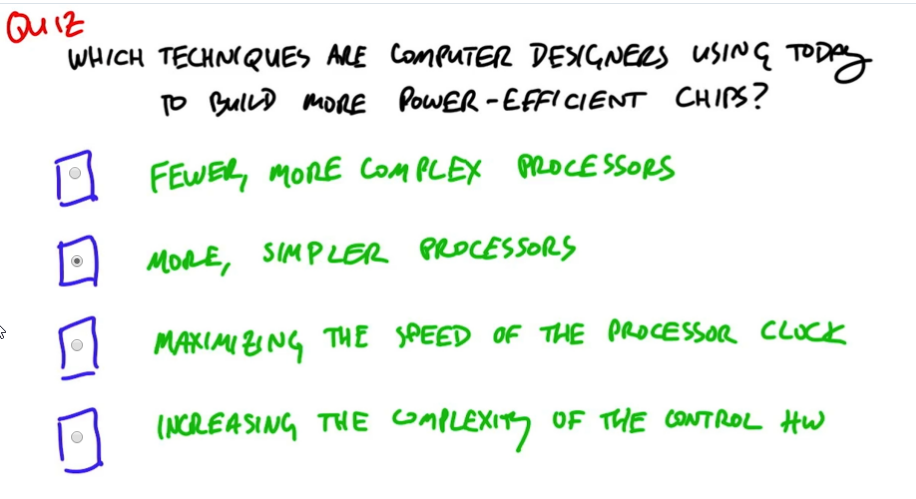 QUIZ
WHICH TECHNIQUES ARE COMPUTER DESIGNERS USING TODAY
TO BUILD MORE POWER-EFFICIENT CHIPS?
FEWER, MORE COMPLEX PROCESSORS
MORE, SIMPLER PROCESSORS
MAXIMIZING THE SPEED OF THE PROCESSOR CLOCK
INCREASING THE COMPLEXITY OF THE CONTROL HW